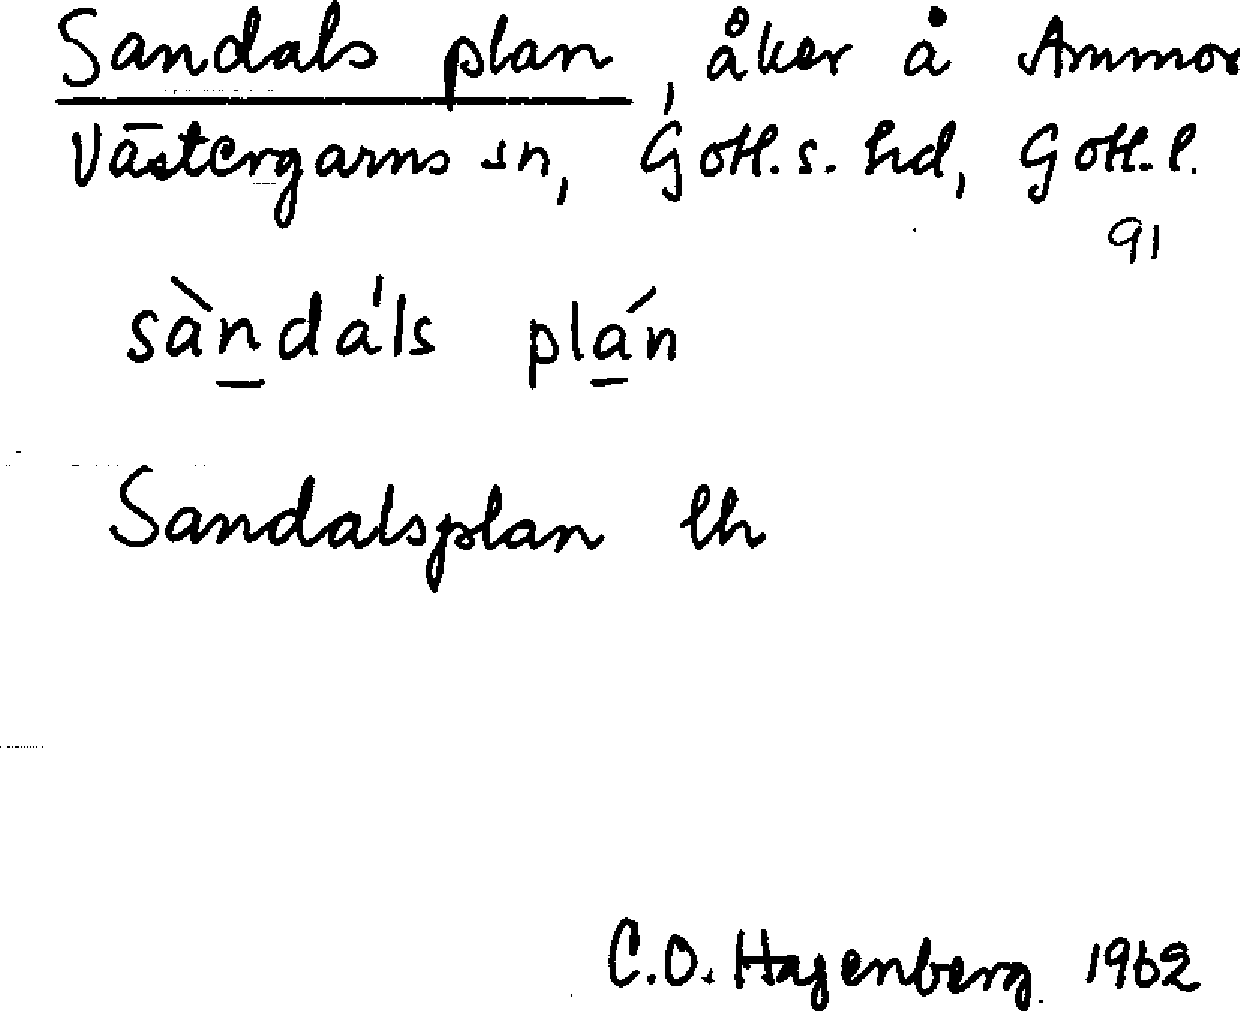 Sandals plan, åker å Ammor
Västergarns sn, Gotl. s. hd, Gotl. l.
91
sàndá'ls plán
Sandalsplan lh
C.O. Hagenberg. 1962